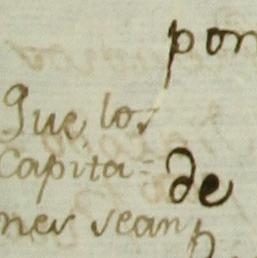 pon
Que los
Capita=
de
nes sean